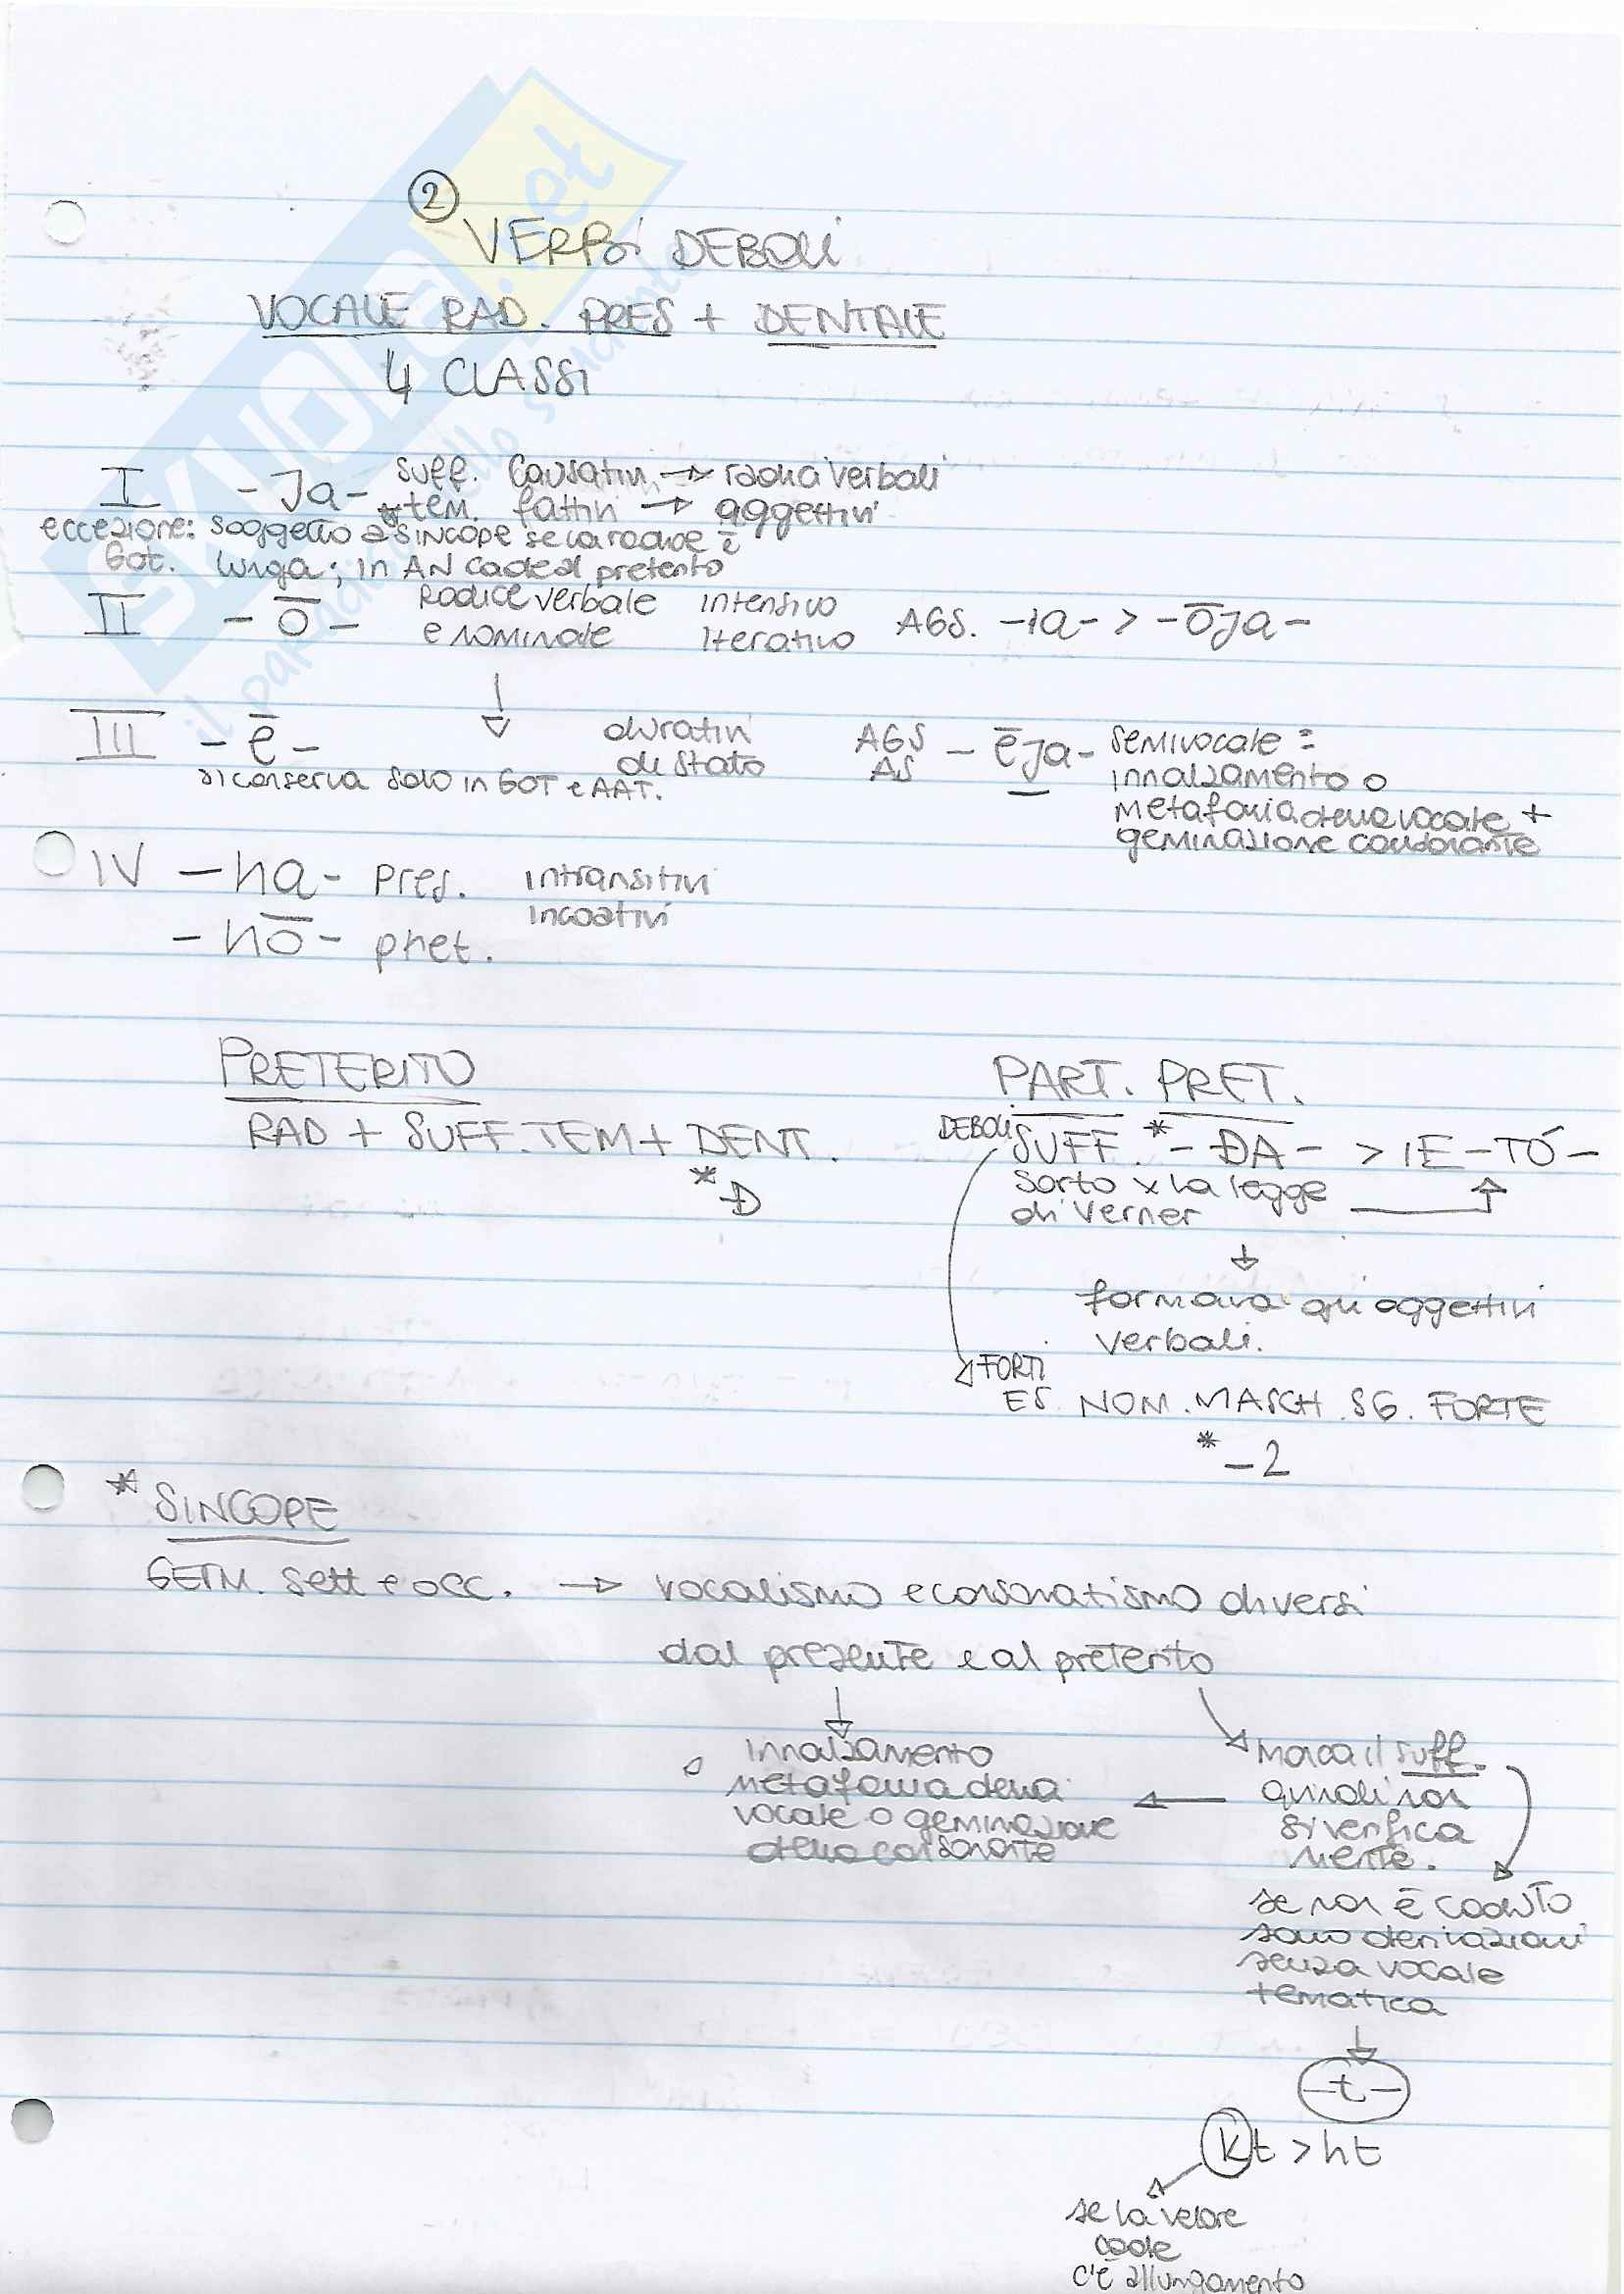 ②
VERBI DEBOLI
VOCALE RAD. PRES + DENTALE
4 CLASSI
I -Ja- suff. causativi → radici verbali
*tem. fattivi → aggettivi
eccezione: soggetto a SINCOPE se la radice è
Got. lunga; in AN cade al preterito
II -ō- Radice verbale intensivo AGS. -ia- > -ōja-
e nominale iterativo
III -ē- durativi AGS -ēja- semivocale =
di stato AS innalzamento o
si conserva solo in GOT e AAT. metafonia della vocale +
geminazione consonante
IV -na- pres. intransitivi
incoativi
-nō- pret.
PRETERITO
RAD + SUFF. TEM + DENT.
*Đ
PART. PRET.
DEBOLI SUFF. *-ĐA- > IE -TÓ-
sorto x la legge
di Verner
formava gli aggettivi
verbali.
FORTI
ES. NOM. MASCH. SG. FORTE
*-2
* SINCOPE
GERM. sett e occ. → vocalismo e consonatismo diversi
dal presente e al preterito
o innalzamento
metafonia della
vocale o geminazione
della consonante
Manca il suff.
quindi non
si verifica
niente.
se non è caduto
sono derivazioni
senza vocale
tematica
-t-
kt > ht
se la velare
cade
c'è allungamento
SKUOLA.net
il paradiso dello studente